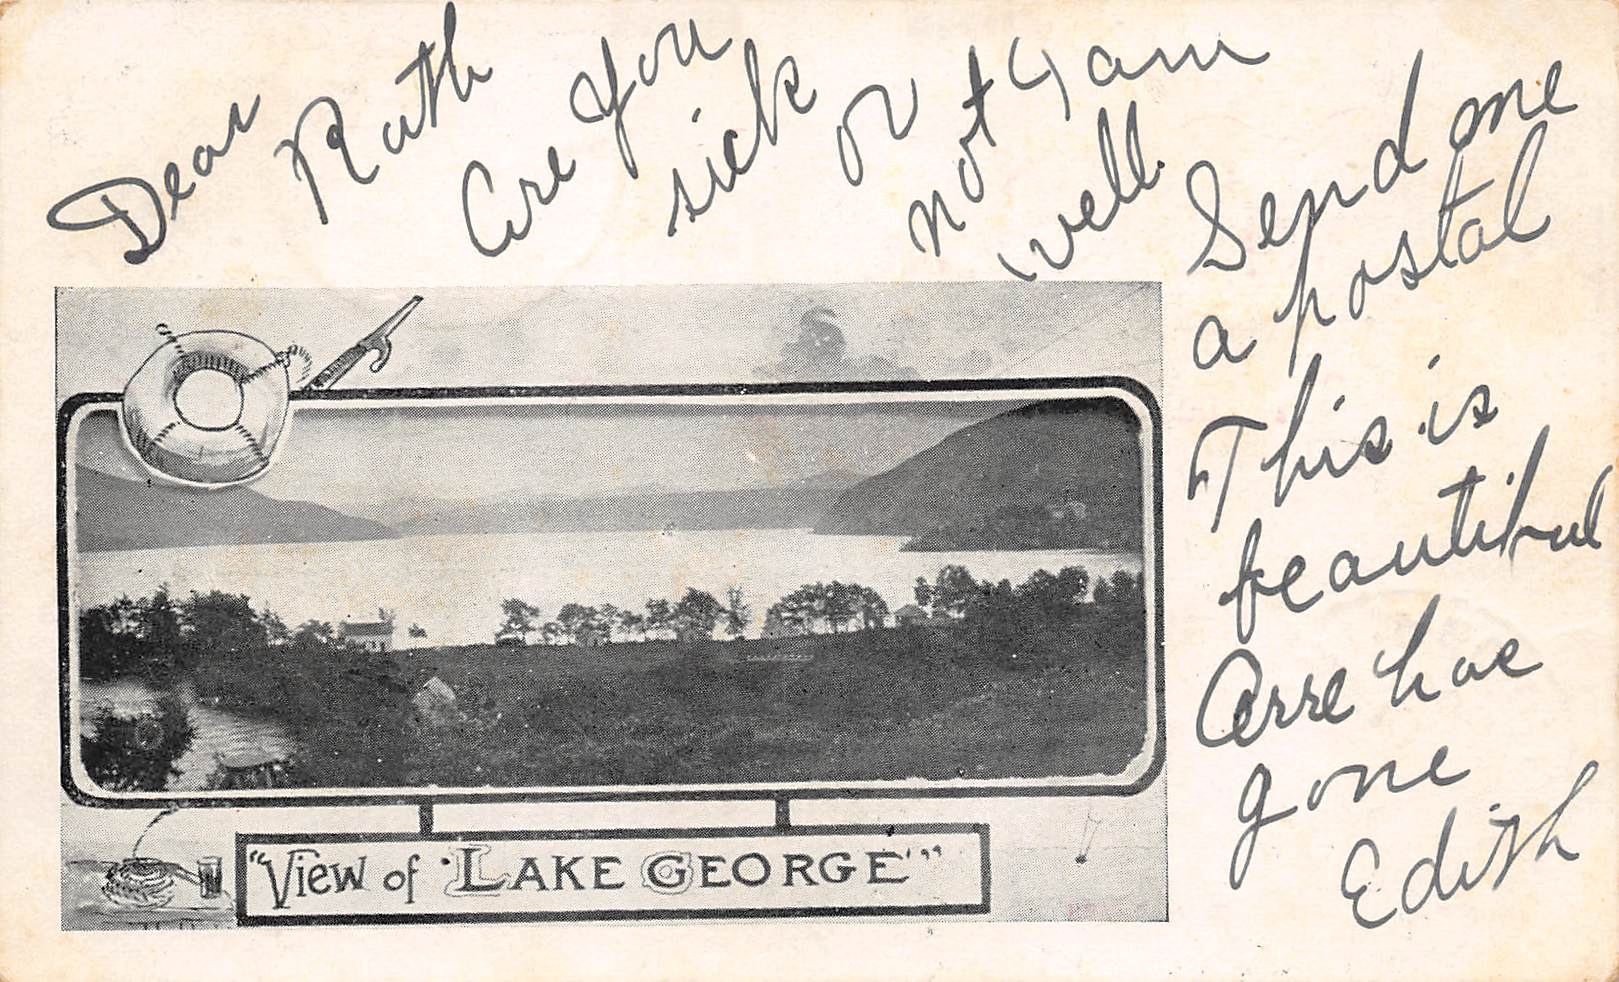 Dear Ruth
are you
sick or
not I am
well.
Send me
a postal
This is
beautiful
has
gone
Edith
"View of 'LAKE GEORGE'"